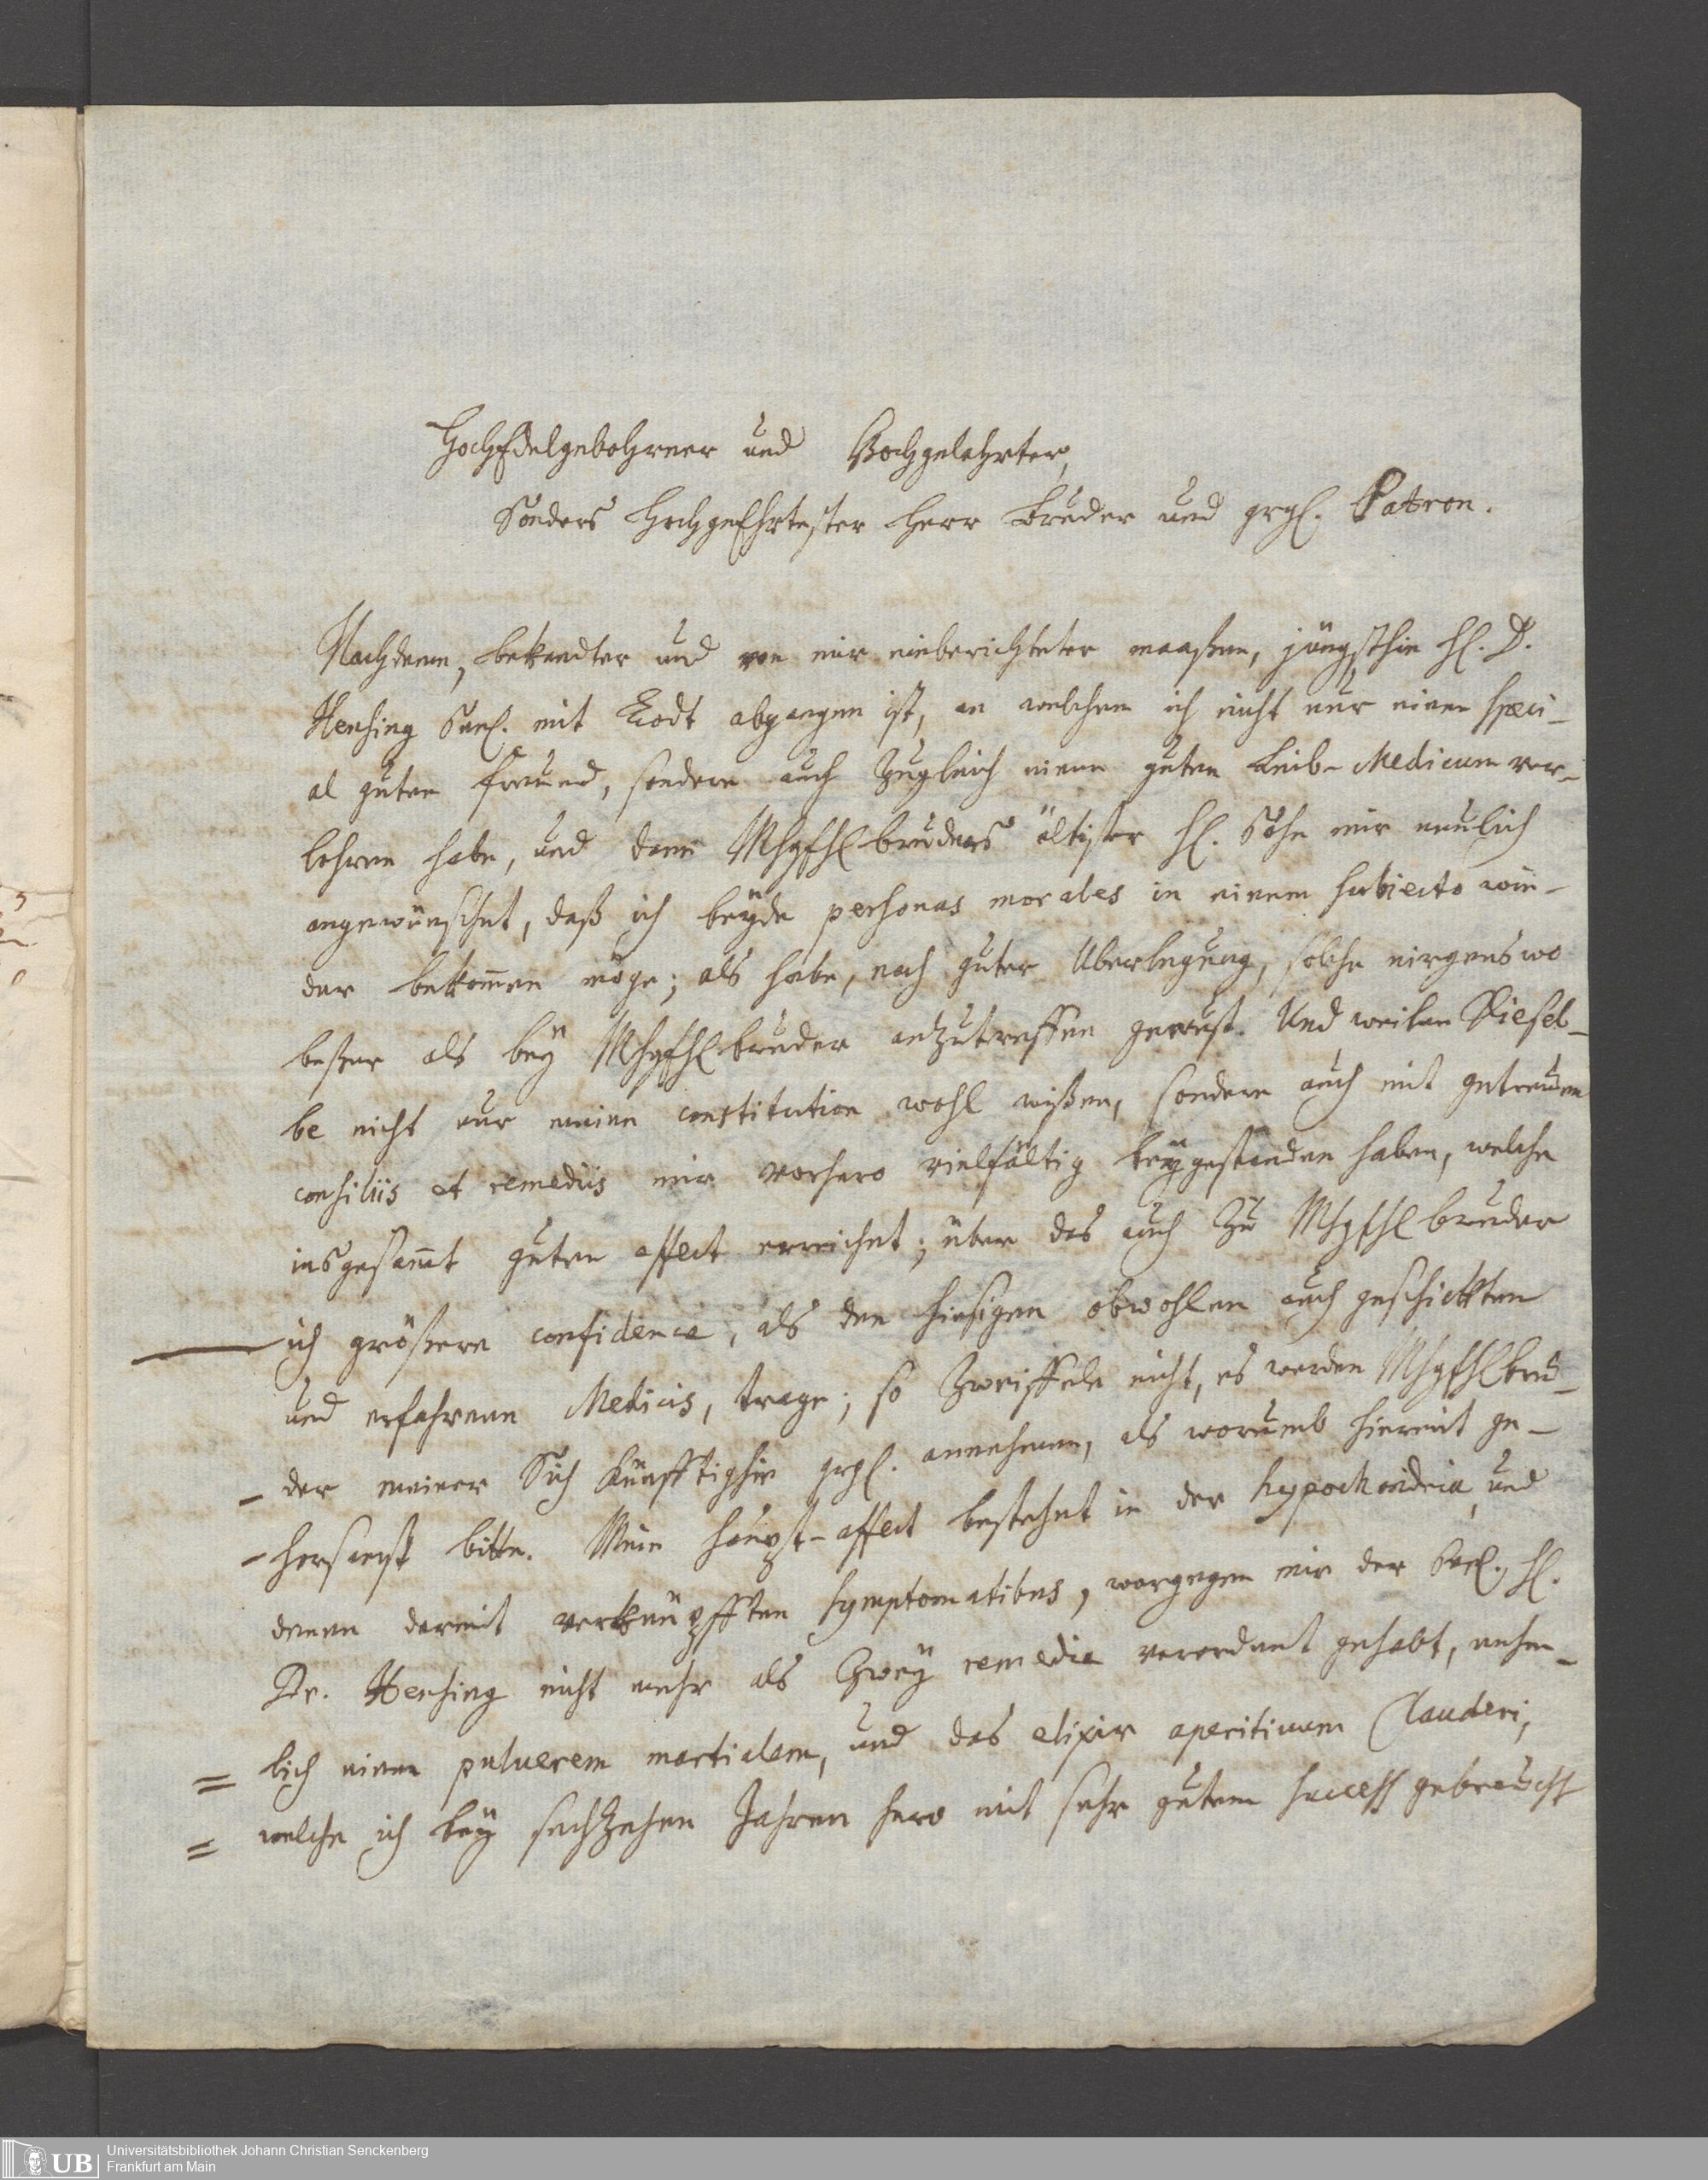 HochEdelgebohrner und Hochgelahrter,
Sonders HochgeEhrtester Herr Bruder und grgl. Patron.
Nachdeme, bekandter und von mir einberichteter maaßen, jüngsthin Hl. D.
Hensing Seel. mit Todt abgangen ist, an welchem ich nicht nur einen speci-
al guten Freund, sondern auch zugleich einen guten Leib-Medicum ver-
lohren habe, und dann MhgEhl bruders ältister Hl. Sohn mir neulich
angewünschet, daß ich beyde personas morales in einem subiecto wie-
der bekom̄en möge; als habe, nach guter Uberlegung, solche nirgenswo
beßer als bey MhgEhl bruder anzutreffen gewust. Und weilen Diesel-
be nicht nur meine constitution wohl wißen, sondern auch mit getreuen
consiliis et remediis mir vorhero vielfältig beygestanden haben, welche
insgesam̄t guten effect erreichet; über das auch zu MhgEhl bruder
ich größere confidence, als den hiesigen obwohlen auch geschickten
und erfahrenen Medicis, trage; so zweiffele nicht, es werden MhgEhl bru-
der meiner Sich künfftighin grgl. annehmen, als worumb hiermit ge-
horsamst bitte. Mein haupt-affect bestehet in der hypochondria, und
denen darmit verknüpfften symptomatibus, worgegen mir der Seel. Hl.
Dr. Hensing nicht mehr als zwey remedia verordnet gehabt, nehm-
lich einen puluerem martialem, und das elixir aperitiuum Clauderi,
welche ich bey sechzehen Jahren hero mit sehr gutem success gebraucht
UB
Universitätsbibliothek Johann Christian Senckenberg
Frankfurt am Main